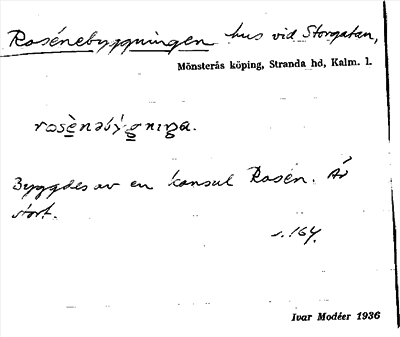 Rosénebyggningen hus vid Storgatan,
Mönsterås köping, Stranda hd, Kalm. l.
rosènəbẏ́gnıŋa.
Byggdes av en konsul Rosén. Är
stort.
s. 164.
Ivar Modéer 1936